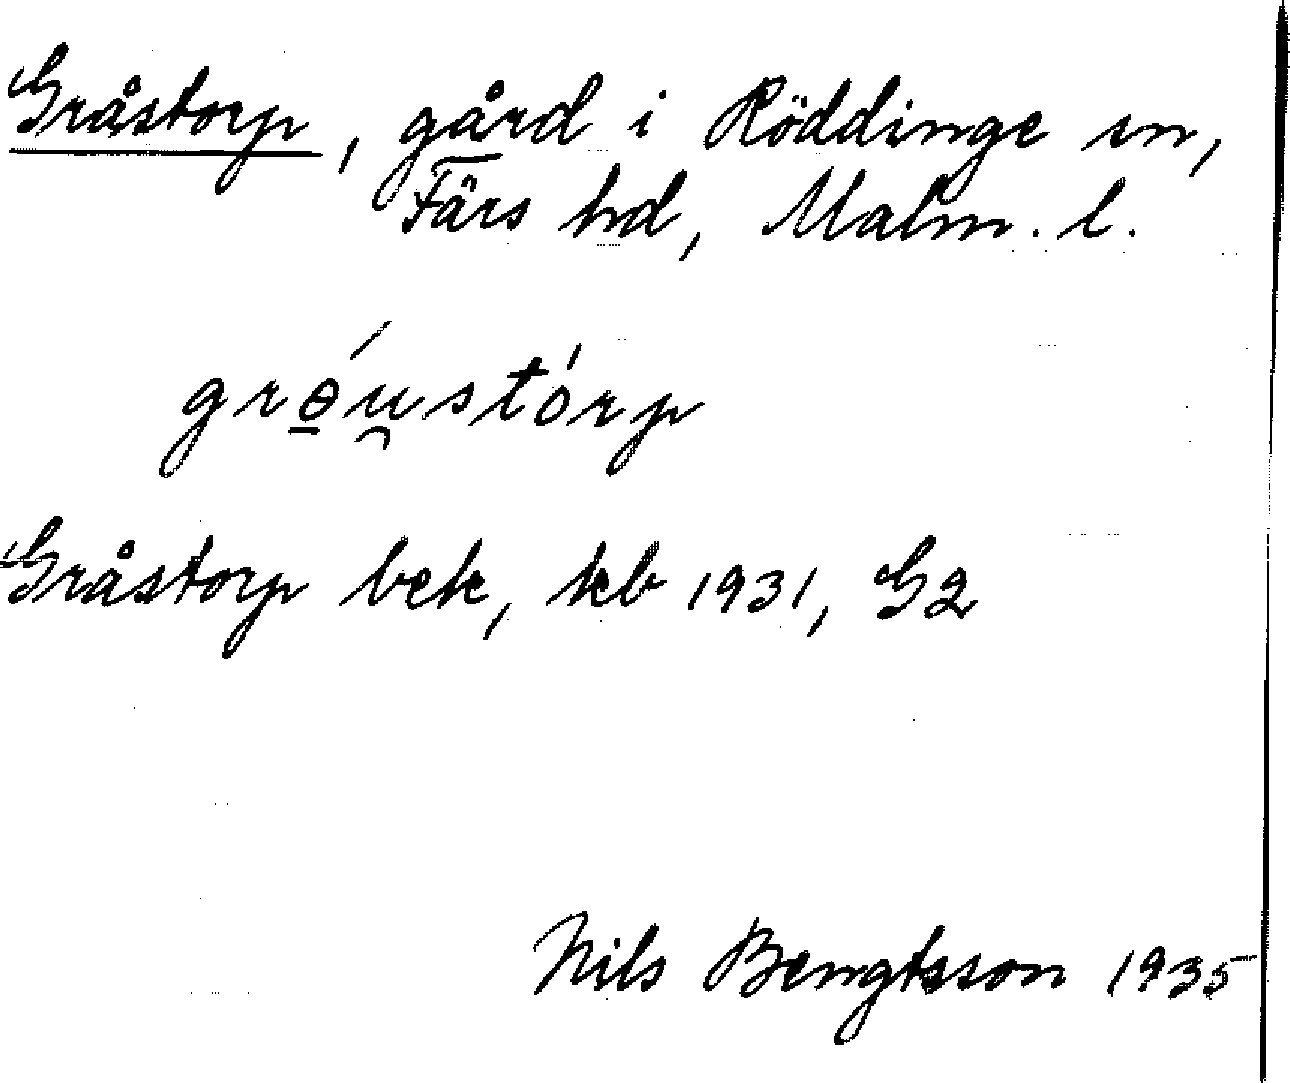 Gråstorp, gård i Röddinge sn,
Färs hd, Malm. l.
grɵ́u̯stórp
Gråstorp bek, kb 1931, G2
Nils Bengtsson 1935